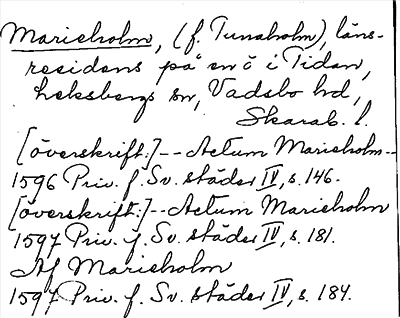 Marieholm, (f. Tunaholm), läns-
residens på en ö i Tidan,
Leksbergs sn, Vadsbo hd,
Skarab. l.
[överskrift:]-- Actum Marieholm--
1596 Priv. f. Sv. städer IV, s. 146.
[överskrift:]-- Actum Marieholm
1597 Priv. f. Sv. städer IV, s. 181.
Af Marieholm
1597 Priv. f. Sv. städer IV, s. 184.